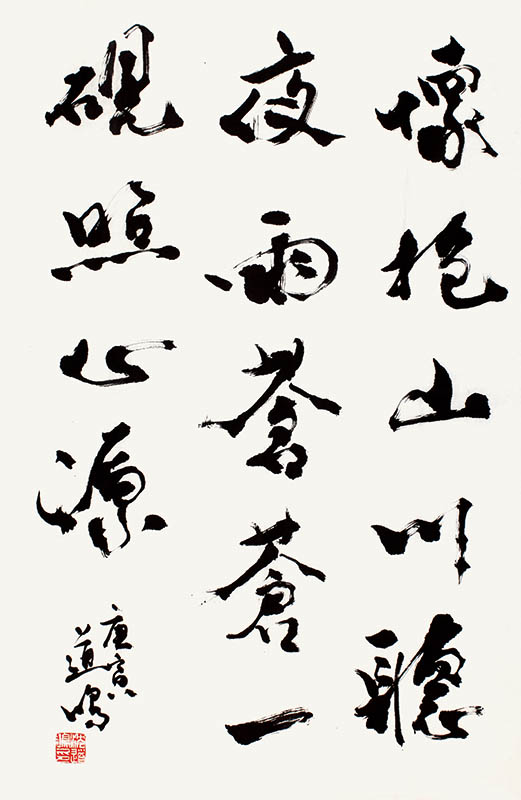 懷抱山川聽
夜雨蒼蒼一
硯照心源
庚寅
道鳴